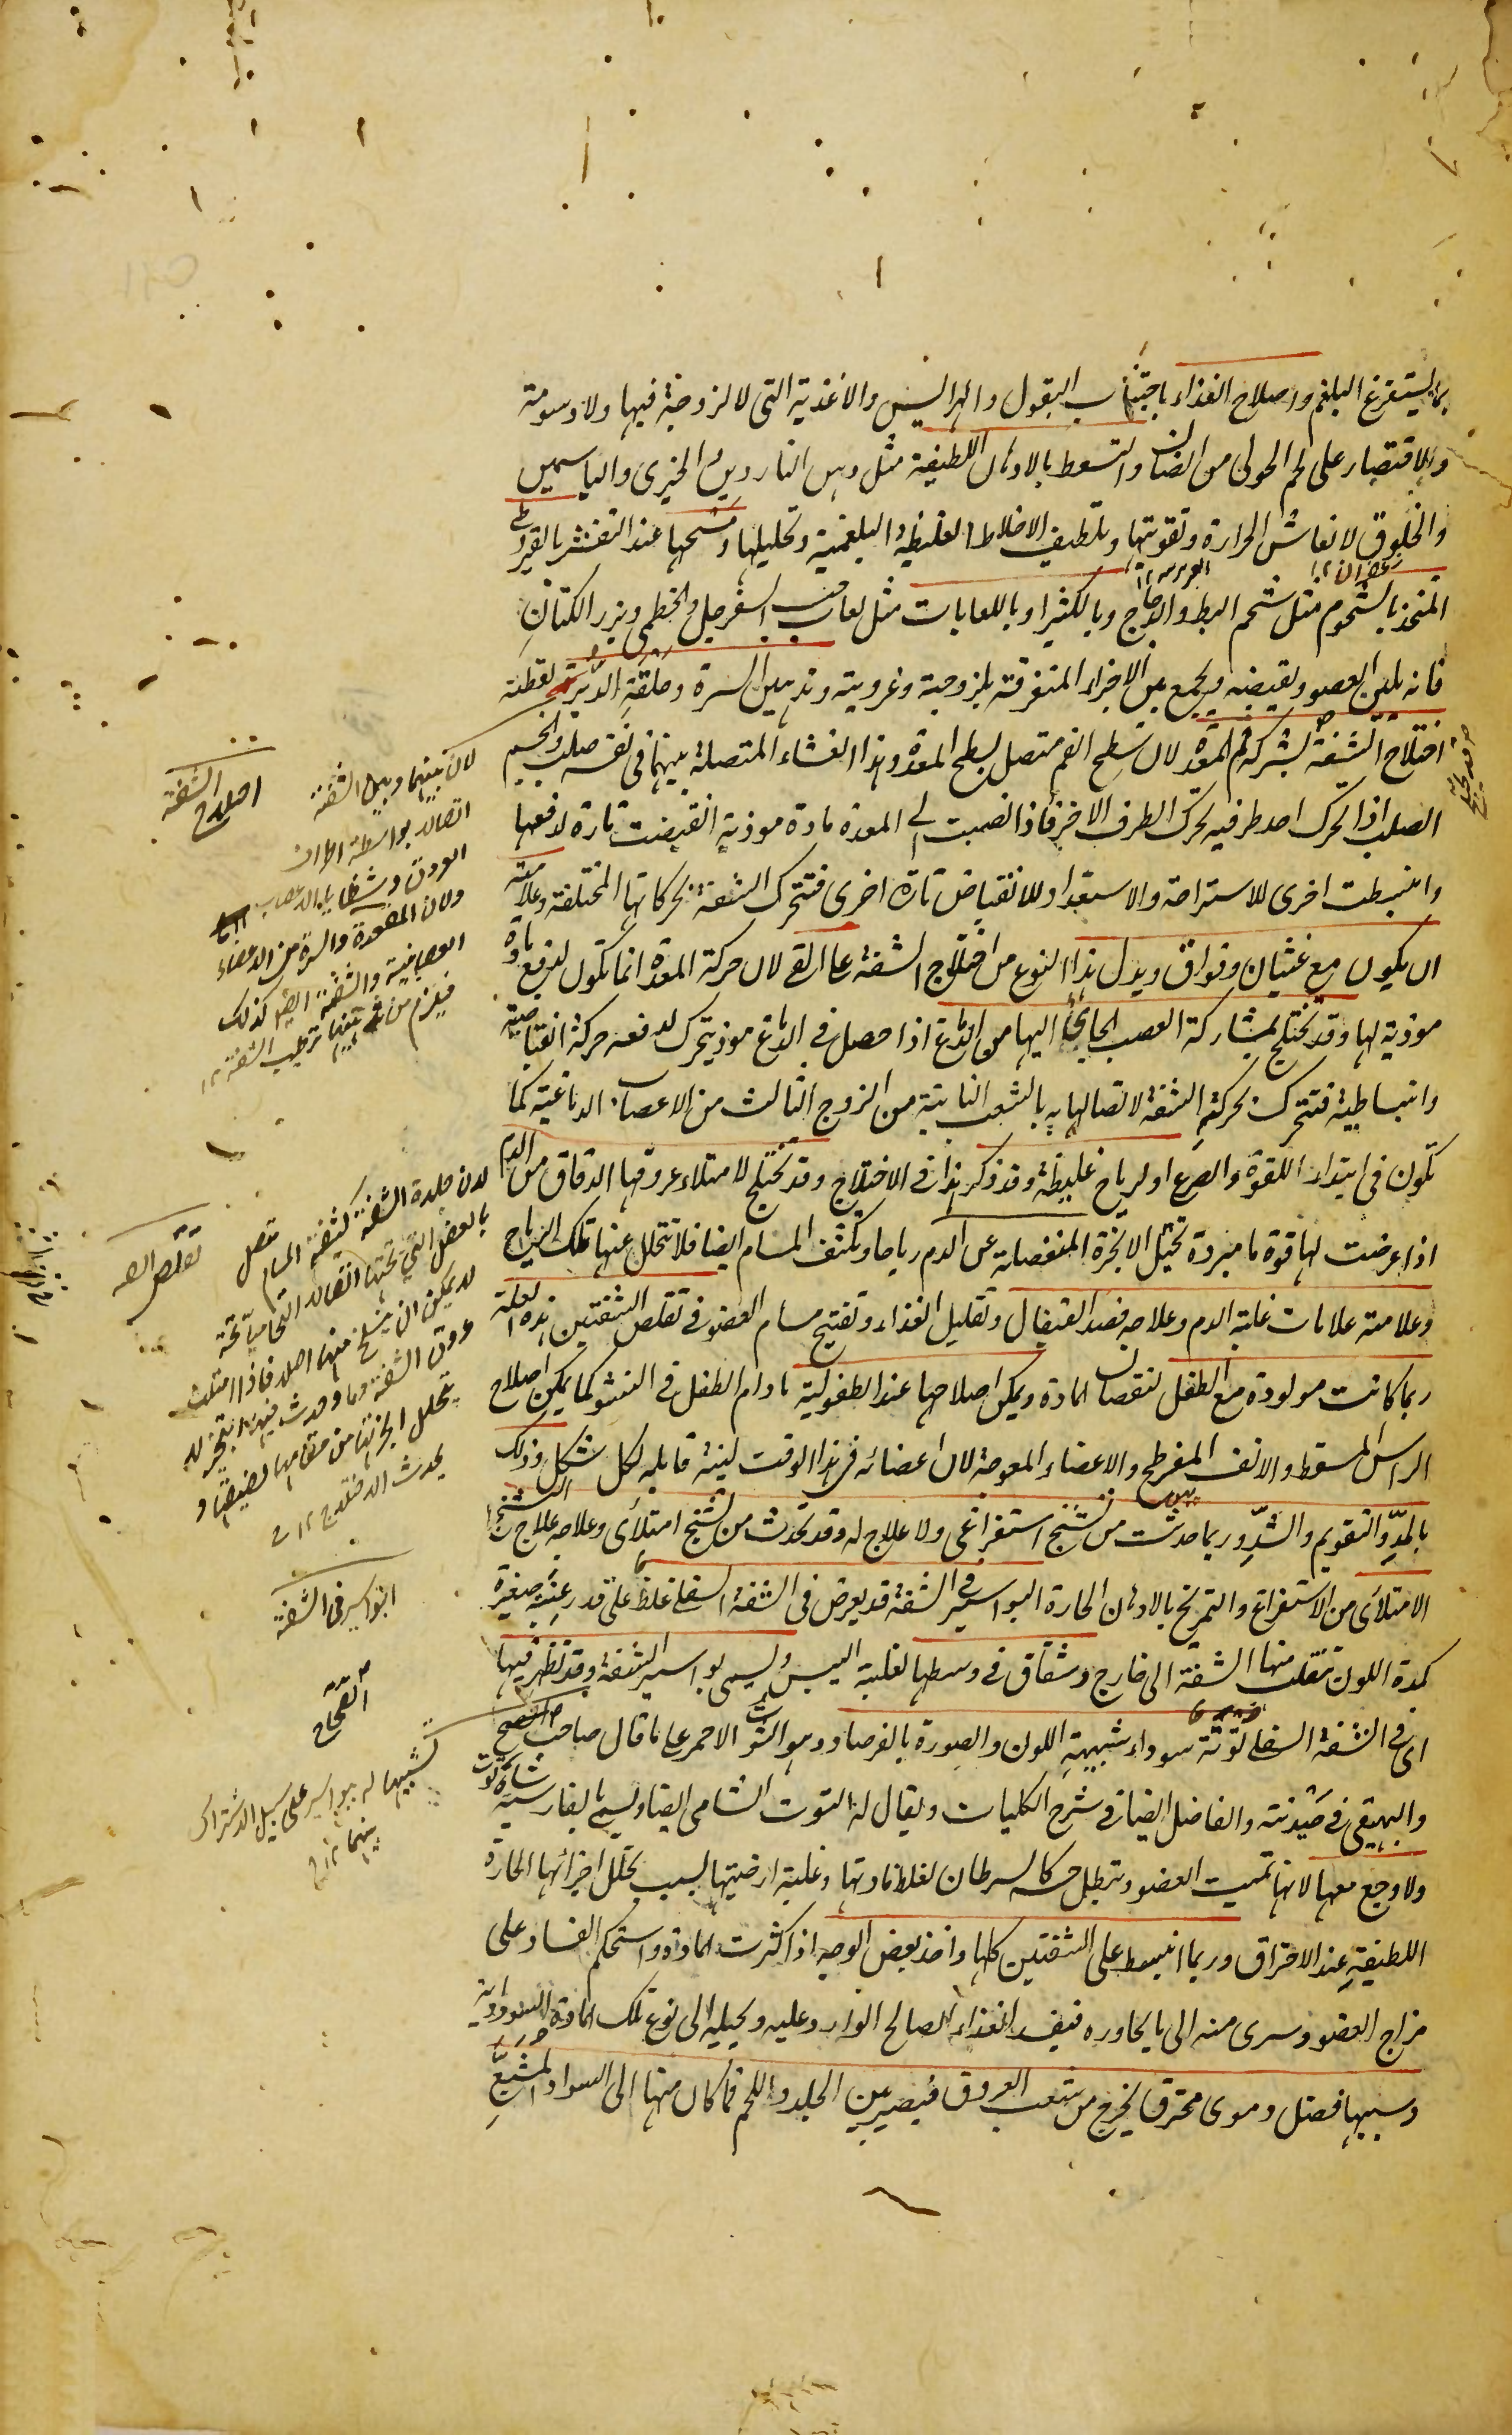 بما يستفرغ البلغم واصلاح الغذاء باجتناب البقول والهرايس والاغذية التى لا لزوجة فيها ولا دسومة
والاقتصار على لحم الحولى من الضان والتسعط بالادهان اللطيفة مثل دهن الناردين والخيرى والياسمين
والخلوق لانعاش الحرارة وتقويتها وتلطيف الاخلاط الغليظة البلغمية وتحليلها ومسحها عند التقشر بالقيروطى
المتخذ بالشحوم مثل شحم البط والدجاج وبالكثيرا وباللعابات مثل لعاب حب السفرجل والخطمى وبزر الكتان
فانه يلين العضو ويقبضه ويجمع بين الاجزاء المتفرقة بلزوجية وغروية وتدهين السرة وحلقة الدبر بقطنة
اختلاج الشفة بشركة فم المعدة لان سطح الفم متصل بسطح المعدة وهذا الغشاء المتصلة بينهما فى نفسه صلب والجسم
الصلب اذا تحرك احد طرفيه تحرك الطرف الاخر فاذا انصبت الى المعدة مادة موذية انقبضت تارة لدفعها
وانبسطت اخرى للاستراحة والاستعداد للانقباض تارة اخرى فتتحرك الشفة بحركاتها المختلفة وعلامته
ان يكون مع غثيان وفواق ويدل هذا النوع من اختلاج الشفة على القئ لان حركة المعدة انما تكون لدفع مادة
موذية لها وقد تختلج بمشاركة العصب الجائى اليها من الدماغ اذا حصل فى الدماغ موذ يتحرك لدفعه حركة انقباضية
وانبساطية فتتحرك بحركته الشفة لاتصالها به بالشعب النابتة من الزوج الثالث من الاعصاب الدماغية كما
تكون فى ابتداء اللقوة والصرع او لرياح غليظة وقد ذكر هذا فى الاختلاج وقد تختلج لامتلاء عروقها الدقاق من الدم
اذا عرضت لها قوة ما مبردة تحيل الابخرة المنفصلة عن الدم رياحا وتكثف المسام ايضا فلا تتحلل عنها تلك الرياح
وعلامته علامات غلبة الدم وعلاجه فصد القيفال وتقليل الغذاء وتفتيح مسام العضو فى تقلص الشفتين هذه العلة
ربما كانت مولودة مع الطفل لنقصان المادة ويمكن اصلاحها عند الطفولية مادام الطفل فى النشو كما يمكن اصلاح
الراس المسقط والانف المفرطح والاعضاء المعوجة لان اعضائه فى هذا الوقت لينة قابلة لكل شكل وذلك
بالمد والتقويم والشد وربما حدثت من تشنج استفراغى ولا علاج له وقد تحدث من تشنج امتلائى وعلاجه علاج التشنج
الامتلائى من الاستفراغ والتمريخ بالادهان الحارة البواسير فى الشفة قد يعرض فى الشفة السفلى غلظ على قدر عنبة صغيرة
كمدة اللون تنقلب منها الشفة الى خارج وشقاق فى وسطها لغلبة اليبس ويسمى بواسير الشفة وقد تظهر فيها
اى فى الشفة السفلى توتة سوداء شبيهة اللون والصورة بالفرصاد وهو التوت الاحمر على ما قال صاحب
والبيهقى فى صيدنته والفاضل ايضا فى شرح الكليات ويقال له التوت الشامى ايضا ويسمى بالفارسية شاه توت
ولا وجع معها لانها تميت العضو وتبطل حسه كالسرطان لغلظ مادتها وغلبة ارضيتها بسبب تحلل اجزائها الحارة
اللطيفة عند الاحتراق وربما انبسط على الشفتين كلها واخذ بعض الوجه اذا كثرت المادة واستحكم الفساد على
مزاج العضو وسرى منه الى ما يجاوره فيفسد الغذاء الصالح الوارد عليه ويحيله الى نوع تلك المادة السوداوية
وسببها فضل دموى محترق يخرج من شعب العروق فيصير بين الجلد واللحم فما كان منها الى السواد المشبع
اختلاج الشفة
لان بينهما وبين الشفة
اتصالا بواسطة اطراف
العروق وشظايا الاعصاب
ولان المقعدة والسرة من الاعضاء
العصبانية والشفة ايضا كذلك
فيلزم من ترطيب الشفة ١٢
تقلص الشفة
لان جلدة الشفة كثيفة المسام متصل
بالعضل التى تحتها اتصالا
لا يمكن ان ينسلخ منها اصلا فاذا امتلت
عروق الشفة
يحدث الاختلاج ١٢
البواسير فى الشفة
تشبيها له ببواسير على سبيل الاشتراك
بينهما ١٢